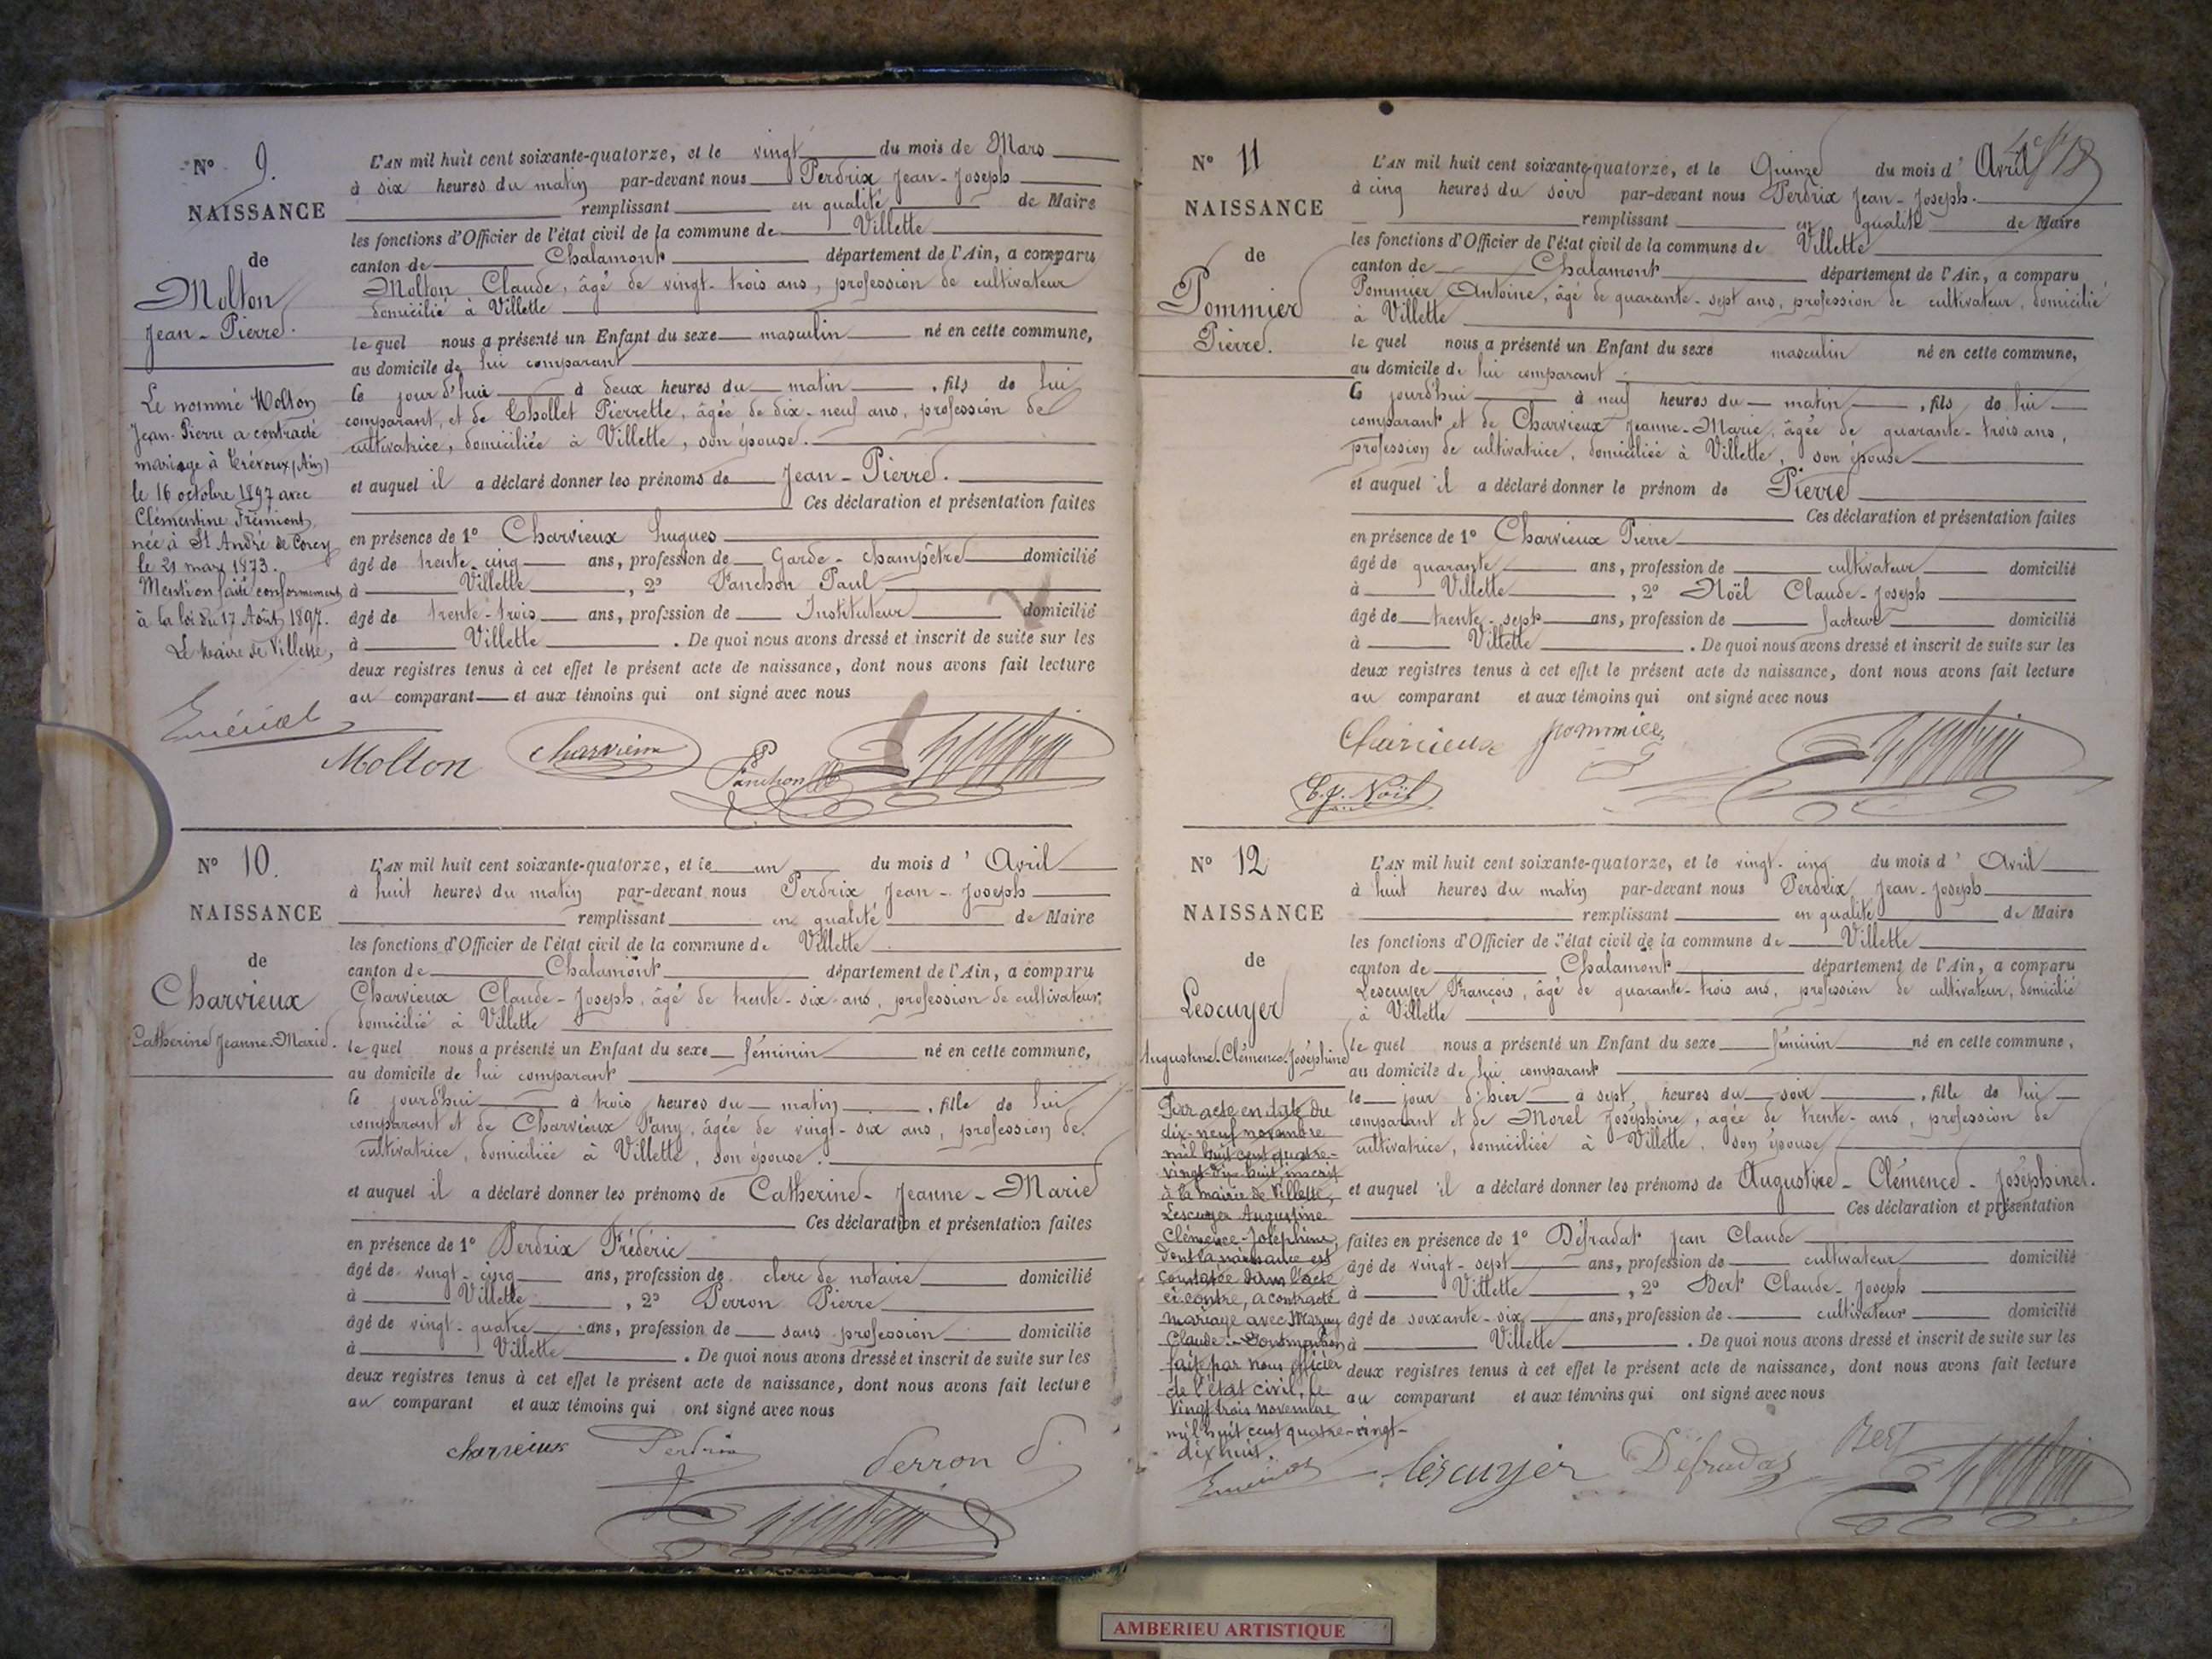 N° 9.
NAISSANCE
de
Molton
Jean-Pierre.
Le nommé Molton
Jean-Pierre a contracté
mariage à Trévoux (Ain)
le 16 octobre 1897 avec
Clémentine Frémiont
née à St André de Corcy
le 21 mars 1873.
Mention faite conformément
à la loi du 17 Août 1897.
Le Maire de Villette,
L'AN mil huit cent soixante-quatorze, et le vingt du mois de Mars
à six heures du matin par-devant nous Perdrix Jean-Joseph
remplissant en qualité de Maire
les fonctions d'Officier de l'état civil de la commune de Villette
canton de Chalamont département de l'Ain, a comparu
Molton Claude, âgé de vingt-trois ans, profession de cultivateur
domicilié à Villette
le quel nous a présenté un Enfant du sexe masculin né en cette commune,
au domicile de lui comparant
le jour d'hui à deux heures du matin, fils de lui
comparant, et de Chollet Pierrette, âgée de dix-neuf ans, profession de
cultivatrice, domiciliée à Villette, son épouse.
et auquel il a déclaré donner les prénoms de Jean-Pierre.
Ces déclaration et présentation faites
en présence de 1° Charvieux hugues
âgé de trente-cinq ans, profession de Garde-champêtre domicilié
à Villette, 2° Fanchon Paul
âgé de trente-trois ans, profession de Instituteur domicilié
à Villette. De quoi nous avons dressé et inscrit de suite sur les
deux registres tenus à cet effet le présent acte de naissance, dont nous avons fait lecture
au comparant et aux témoins qui ont signé avec nous
Molton Charvieux Fanchon
N° 10.
NAISSANCE
de
Charvieux
Catherine Jeanne-Marie.
L'AN mil huit cent soixante-quatorze, et le un du mois d'Avril
à huit heures du matin par-devant nous Perdrix Jean-Joseph
remplissant en qualité de Maire
les fonctions d'Officier de l'état civil de la commune de Villette
canton de Chalamont département de l'Ain, a comparu
Charvieux Claude-Joseph, âgé de trente-six ans, profession de cultivateur,
domicilié à Villette
le quel nous a présenté un Enfant du sexe féminin né en cette commune,
au domicile de lui comparant
le jourd'hui à trois heures du matin, fille de lui
comparant et de Charvieux Fany, âgée de vingt-six ans, profession de
cultivatrice, domiciliée à Villette, son épouse.
et auquel il a déclaré donner les prénoms de Catherine-Jeanne-Marie
Ces déclaration et présentation faites
en présence de 1° Perdrix Frédéric
âgé de vingt-cinq ans, profession de clerc de notaire domicilié
à Villette, 2° Perron Pierre
âgé de vingt-quatre ans, profession de sans profession domicilié
à Villette. De quoi nous avons dressé et inscrit de suite sur les
deux registres tenus à cet effet le présent acte de naissance, dont nous avons fait lecture
au comparant et aux témoins qui ont signé avec nous
charvieux Perdrix Perron
N° 11
NAISSANCE
de
Pommier
Pierre.
L'AN mil huit cent soixante-quatorze, et le Quinze du mois d'Avril
à cinq heures du soir par-devant nous Perdrix Jean-Joseph.
remplissant en qualité de Maire
les fonctions d'Officier de l'état civil de la commune de Villette
canton de Chalamont département de l'Ain, a comparu
Pommier Antoine, âgé de quarante-sept ans, profession de cultivateur, domicilié
à Villette
le quel nous a présenté un Enfant du sexe masculin né en cette commune,
au domicile de lui comparant
le jourd'hui à neuf heures du matin, fils de lui
comparant et de Charvieux Jeanne-Marie, âgée de quarante-trois ans,
profession de cultivatrice, domiciliée à Villette, son épouse
et auquel il a déclaré donner le prénom de Pierre
Ces déclaration et présentation faites
en présence de 1° Charvieux Pierre
âgé de quarante ans, profession de cultivateur domicilié
à Villette, 2° Noël Claude-Joseph
âgé de trente-sept ans, profession de facteur domicilié
à Villette. De quoi nous avons dressé et inscrit de suite sur les
deux registres tenus à cet effet le présent acte de naissance, dont nous avons fait lecture
au comparant et aux témoins qui ont signé avec nous
Charvieux pommier
C.J. Noël
N° 12
NAISSANCE
de
Lescuyer
Augustine-Clémence-Joséphine
Par acte en date du
dix-neuf novembre
mil huit cent quatre-
vingt-dix-huit inscrit
à la mairie de Villette,
Lescuyer Augustine
Clémence-Joséphine,
dont la naissance est
constatée dans l'acte
ci-contre, a contracté
mariage avec Mazuy
Claude.
faite par nous officier
de l'état civil, le
vingt trois novembre
mil huit cent quatre-vingt-
dix huit.
L'AN mil huit cent soixante-quatorze, et le vingt-cinq du mois d'Avril
à huit heures du matin par-devant nous Perdrix Jean-Joseph
remplissant en qualité de Maire
les fonctions d'Officier de l'état civil de la commune de Villette
canton de Chalamont département de l'Ain, a comparu
Lescuyer François, âgé de quarante-trois ans, profession de cultivateur, domicilié
à Villette
le quel nous a présenté un Enfant du sexe féminin né en cette commune,
au domicile de lui comparant
le jour d'hier à sept heures du soir, fille de lui
comparant et de Morel Joséphine, âgée de trente-ans, profession de
cultivatrice, domiciliée à Villette, son épouse
et auquel il a déclaré donner les prénoms de Augustine-Clémence-Joséphine.
Ces déclaration et présentation
faites en présence de 1° Défradat Jean Claude
âgé de vingt-sept ans, profession de cultivateur domicilié
à Villette, 2° Bert Claude-Joseph
âgé de soixante-six ans, profession de cultivateur domicilié
à Villette. De quoi nous avons dressé et inscrit de suite sur les
deux registres tenus à cet effet le présent acte de naissance, dont nous avons fait lecture
au comparant et aux témoins qui ont signé avec nous
lescuyer Défradas Bert
AMBERIEU ARTISTIQUE